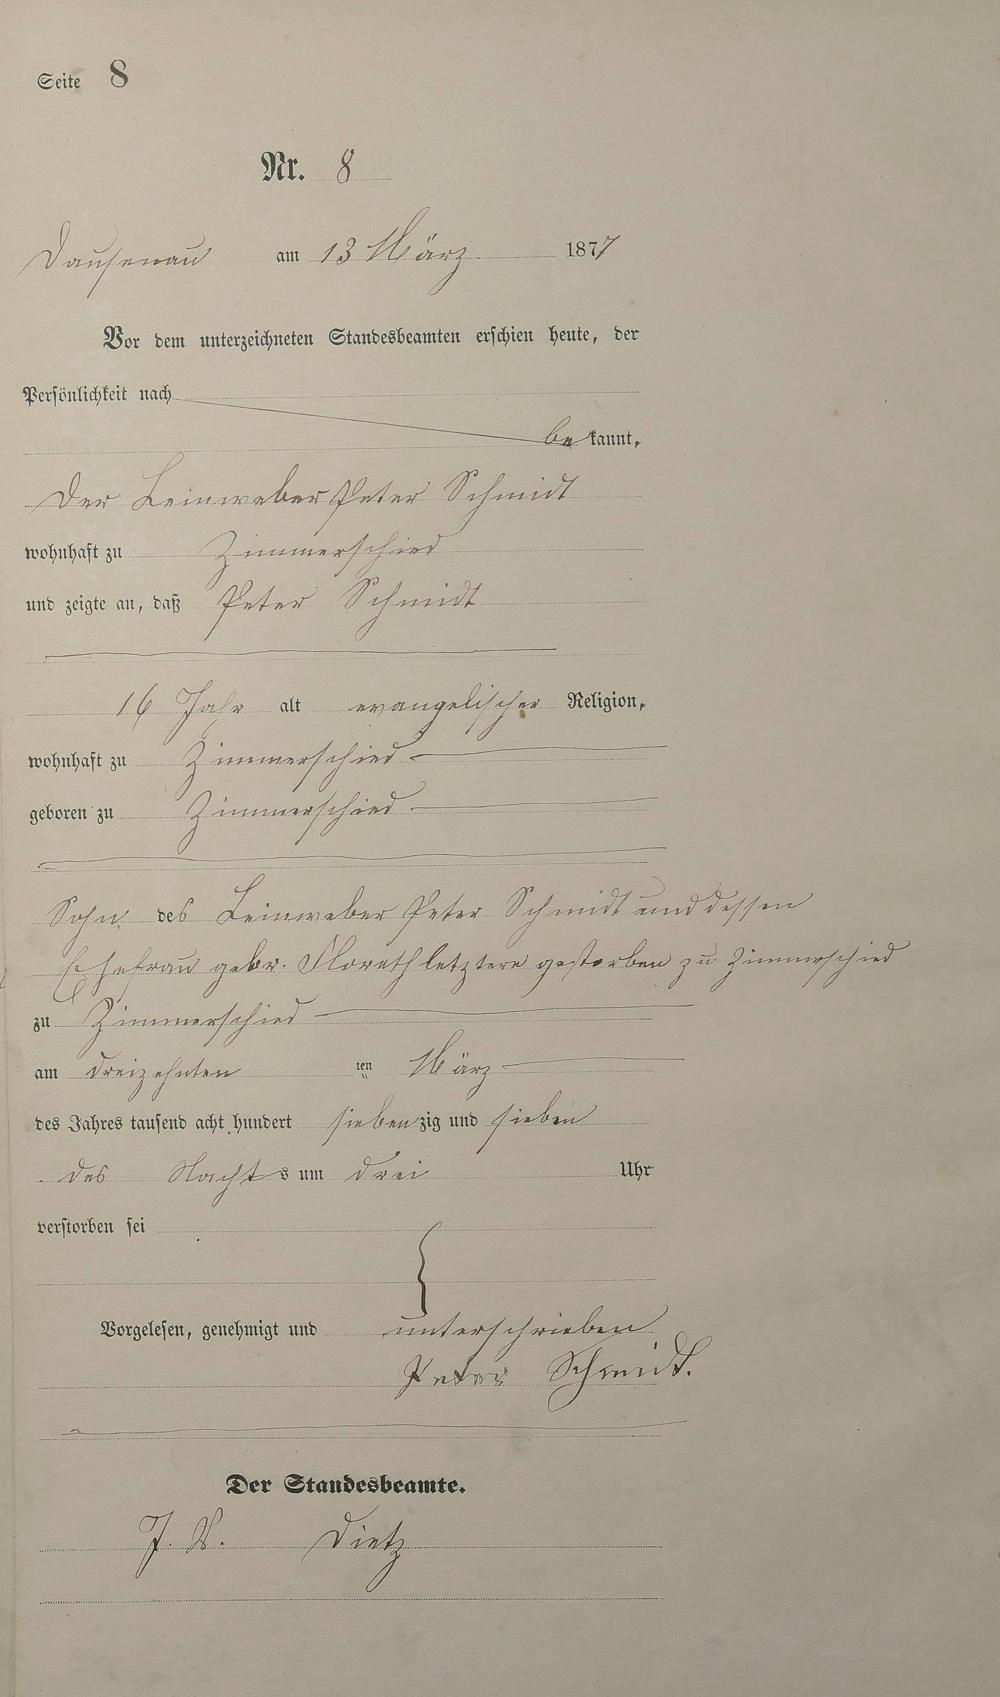 Seite 8
Nr. 8
Dausenau am 13 März 1877
Vor dem unterzeichneten Standesbeamten erschien heute, der
Persönlichkeit nach
bekannt,
der Leinweber Peter Schmidt
wohnhaft zu Zimmerschied
und zeigte an, daß Peter Schmidt
16 Jahr alt evangelischer Religion,
wohnhaft zu Zimmerschied
geboren zu Zimmerschied
Sohn des Leinweber Peter Schmidt und dessen
Ehefrau gebr. Florath letztere gestorben zu Zimmerschied
zu Zimmerschied
am dreizehnten ten März
des Jahres tausend acht hundert siebenzig und sieben
des Nachts um drei Uhr
verstorben sei
Vorgelesen, genehmigt und unterschrieben
Peter Schmidt.
Der Standesbeamte.
J. V. Dietz